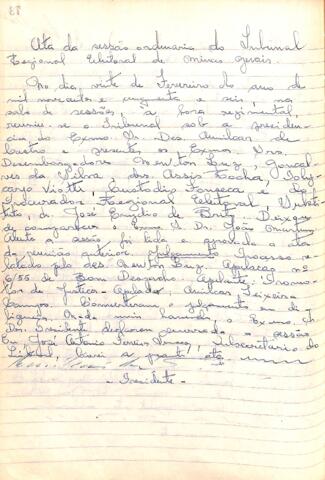 Ata da sessão ordinaria do Tribunal
Regional Eleitoral de Minas Gerais.
No dia vinte de Fevereiro do ano de
mil novecentos e cinquenta e seis, na
sala de sessões, à hora regimental,
reuniu-se o Tribunal sob a presiden-
cia do Exmo. Sr. Des. Amilcar de
Castro e presentes os Exmos. Srs.
Desembargadores Newton Luz, Gonçal-
ves da Silva, drs. Assis Rocha, Poly-
carpo Viotti, Custodio Fonseca e o
Procurador Regional Eleitoral Substi-
tuto, dr. José Emygdio de Brito. Deixou
de comparecer o Exmo. Sr. Dr. João Martins
Aberta a sessão foi lida e aprovada a ata
da reunião anterior. Julgamento Processo re-
latado pelo des. Newton Luz. Apelação nº
6/56 de Bom Despacho. Apelante: Promo-
tor de Justiça. Apelado: Teixeira
Campos. Converteram o julgamento em di-
ligencia. Nada mais havendo, o Exmo. Sr.
Des. Presidente declarou encerrada a sessão.
Eu, José Antonio subsecretario do
Tribunal, lavrei a presente ata
- Presidente -